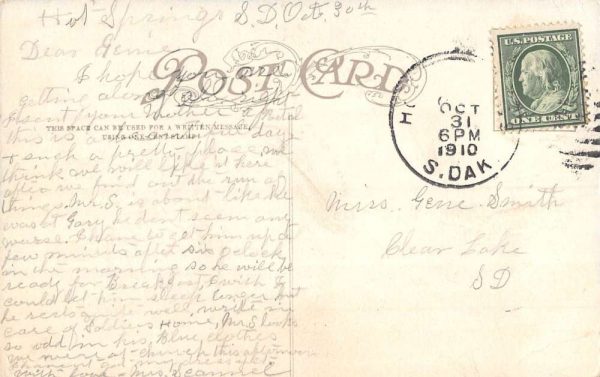 Hot Springs S.D, Oct. 30th
Dear Genie
I hope you are
getting along all right
I sent your Mother a
this is a days
& such a pretty place, we
think we will like it here
after we find out the run of
things, Mr S. is about like he
was at Gary, he dont seem any
worse. I have to get him up a
few minuets after six o,clock
in the morning so he will be
ready for Breakfast, I wish I
could let him sleep longer but
he rests quite well, write in
care of Soldiers Home, Mr S looks
so odd in his Blue clothes
we were at church this afternoon
got my dress yet
with love - Mrs. Scannel
POST CARD
THIS SPACE CAN BE USED FOR A WRITTEN MESSAGE
USING ONE CENT STAMP
H
OCT
31
6PM
1910
S. DAK
U.S. POSTAGE
ONE CENT
Miss. Gene Smith
Clear Lake
SD